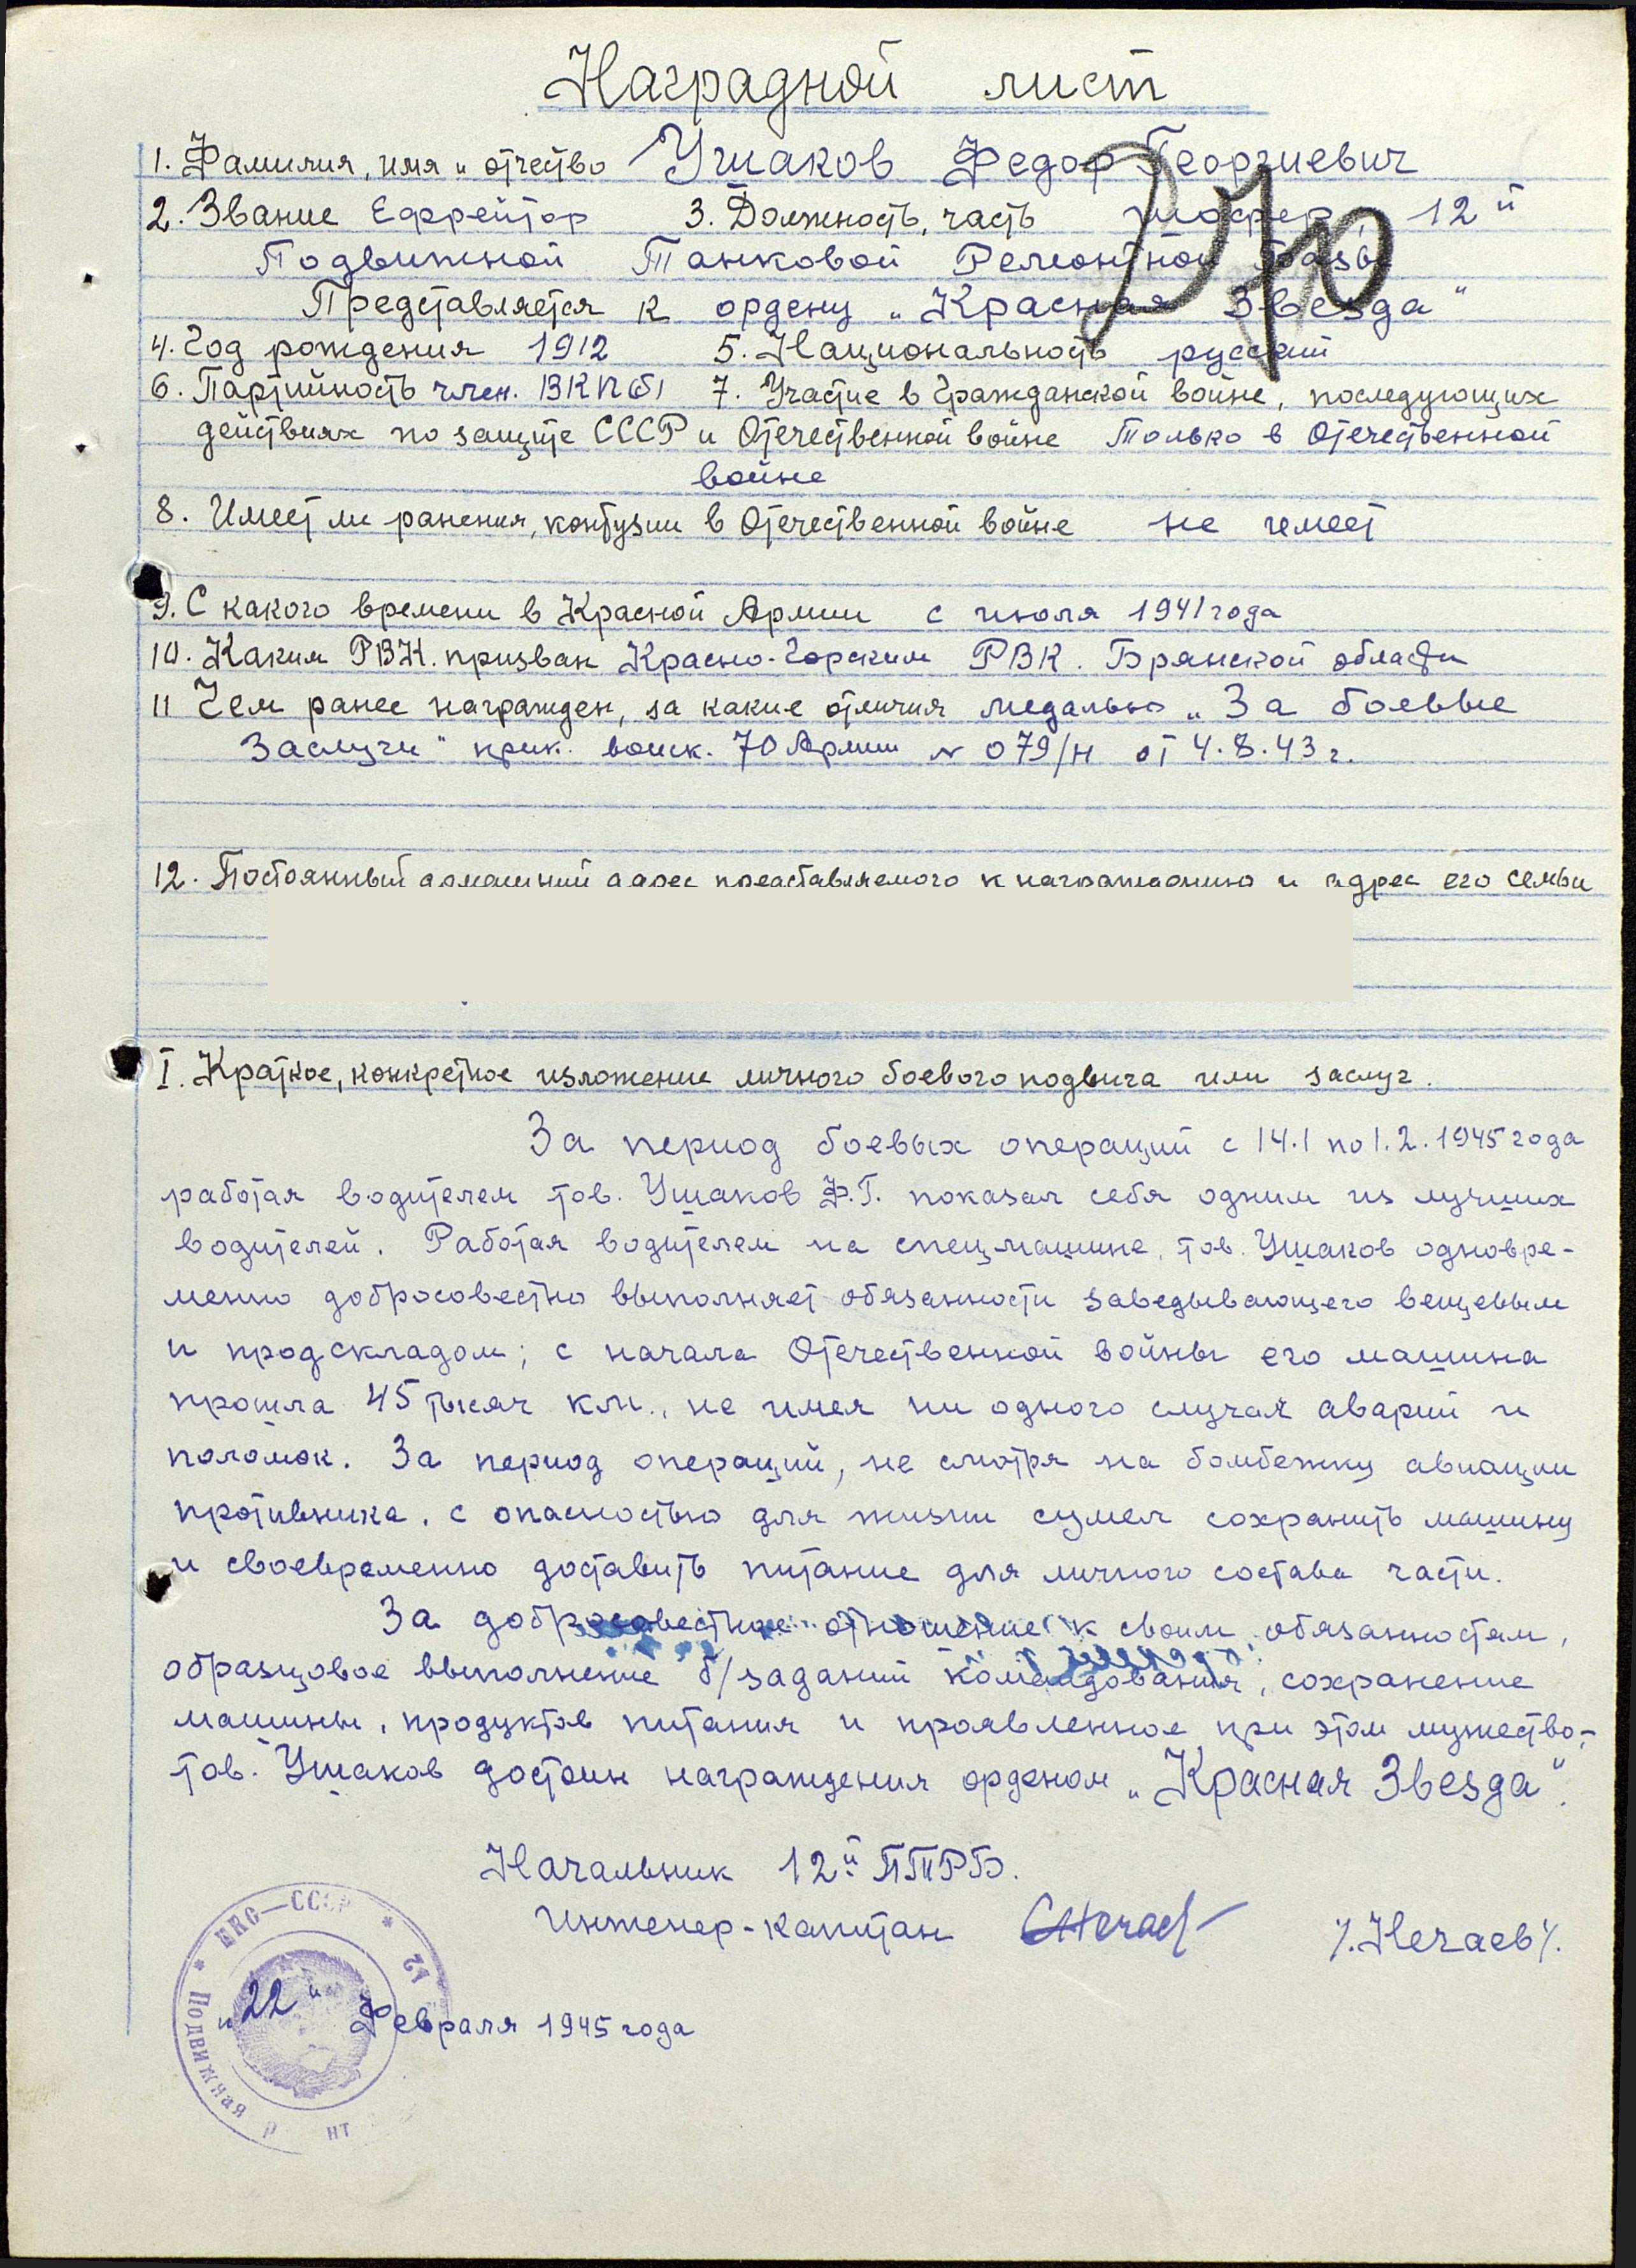 Наградной лист
1. Фамилия, имя и отчество Ушаков Федор Георгиевич
2. Звание Ефрейтор 3. Должность, часть шофер, 12й
Подвижной Танковой Ремонтной Базы
Представляется к ордену „Красная Звезда"
4. Год рождения 1912 5. Национальность русский
6. Партийность член. ВКП(б) 7. Участие в Гражданской войне, последующих
действиях по защите СССР и Отечественной войне Только в Отечественной
войне
8. Имеет ли ранения, контузии в Отечественной войне не имеет
9. С какого времени в Красной Армии с июля 1941 года
10. Каким РВК. призван Красно-Горским РВК. Брянской области
11 Чем ранее награжден, за какие отличия медалью „За боевые
Заслуги" прик. войск. 70 Армии № 079/н от 4.8.43 г.
12. Постоянный домашний адрес представляемого к награждению и адрес его семьи
I. Краткое, конкретное изложение личного боевого подвига или заслуг.
За период боевых операций с 14.1 по 1.2.1945 года
работая водителем тов. Ушаков Ф.Г. показал себя одним из лучших
водителей. Работая водителем на спецмашине, тов. Ушаков одновре-
менно добросовестно выполняет обязанности заведывающего вещевым
и продскладом; с начала Отечественной войны его машина
прошла 45 тысяч км., не имея ни одного случая аварий и
поломок. За период операций, не смотря на бомбежку авиации
противника, с опасностью для жизни сумел сохранить машину
и своевременно доставить питание для личного состава части.
За добросовестное отношение к своим обязанностям,
образцовое выполнение б/заданий командования, сохранение
машины, продуктов питания и проявленное при этом мужество,-
тов. Ушаков достоин награждения орденом „Красная Звезда".
Начальник 12й ПТРБ.
Инженер-капитан /.Нечаев/.
„22" Февраля 1945 года
НКО—СССР * 12
Подвижная